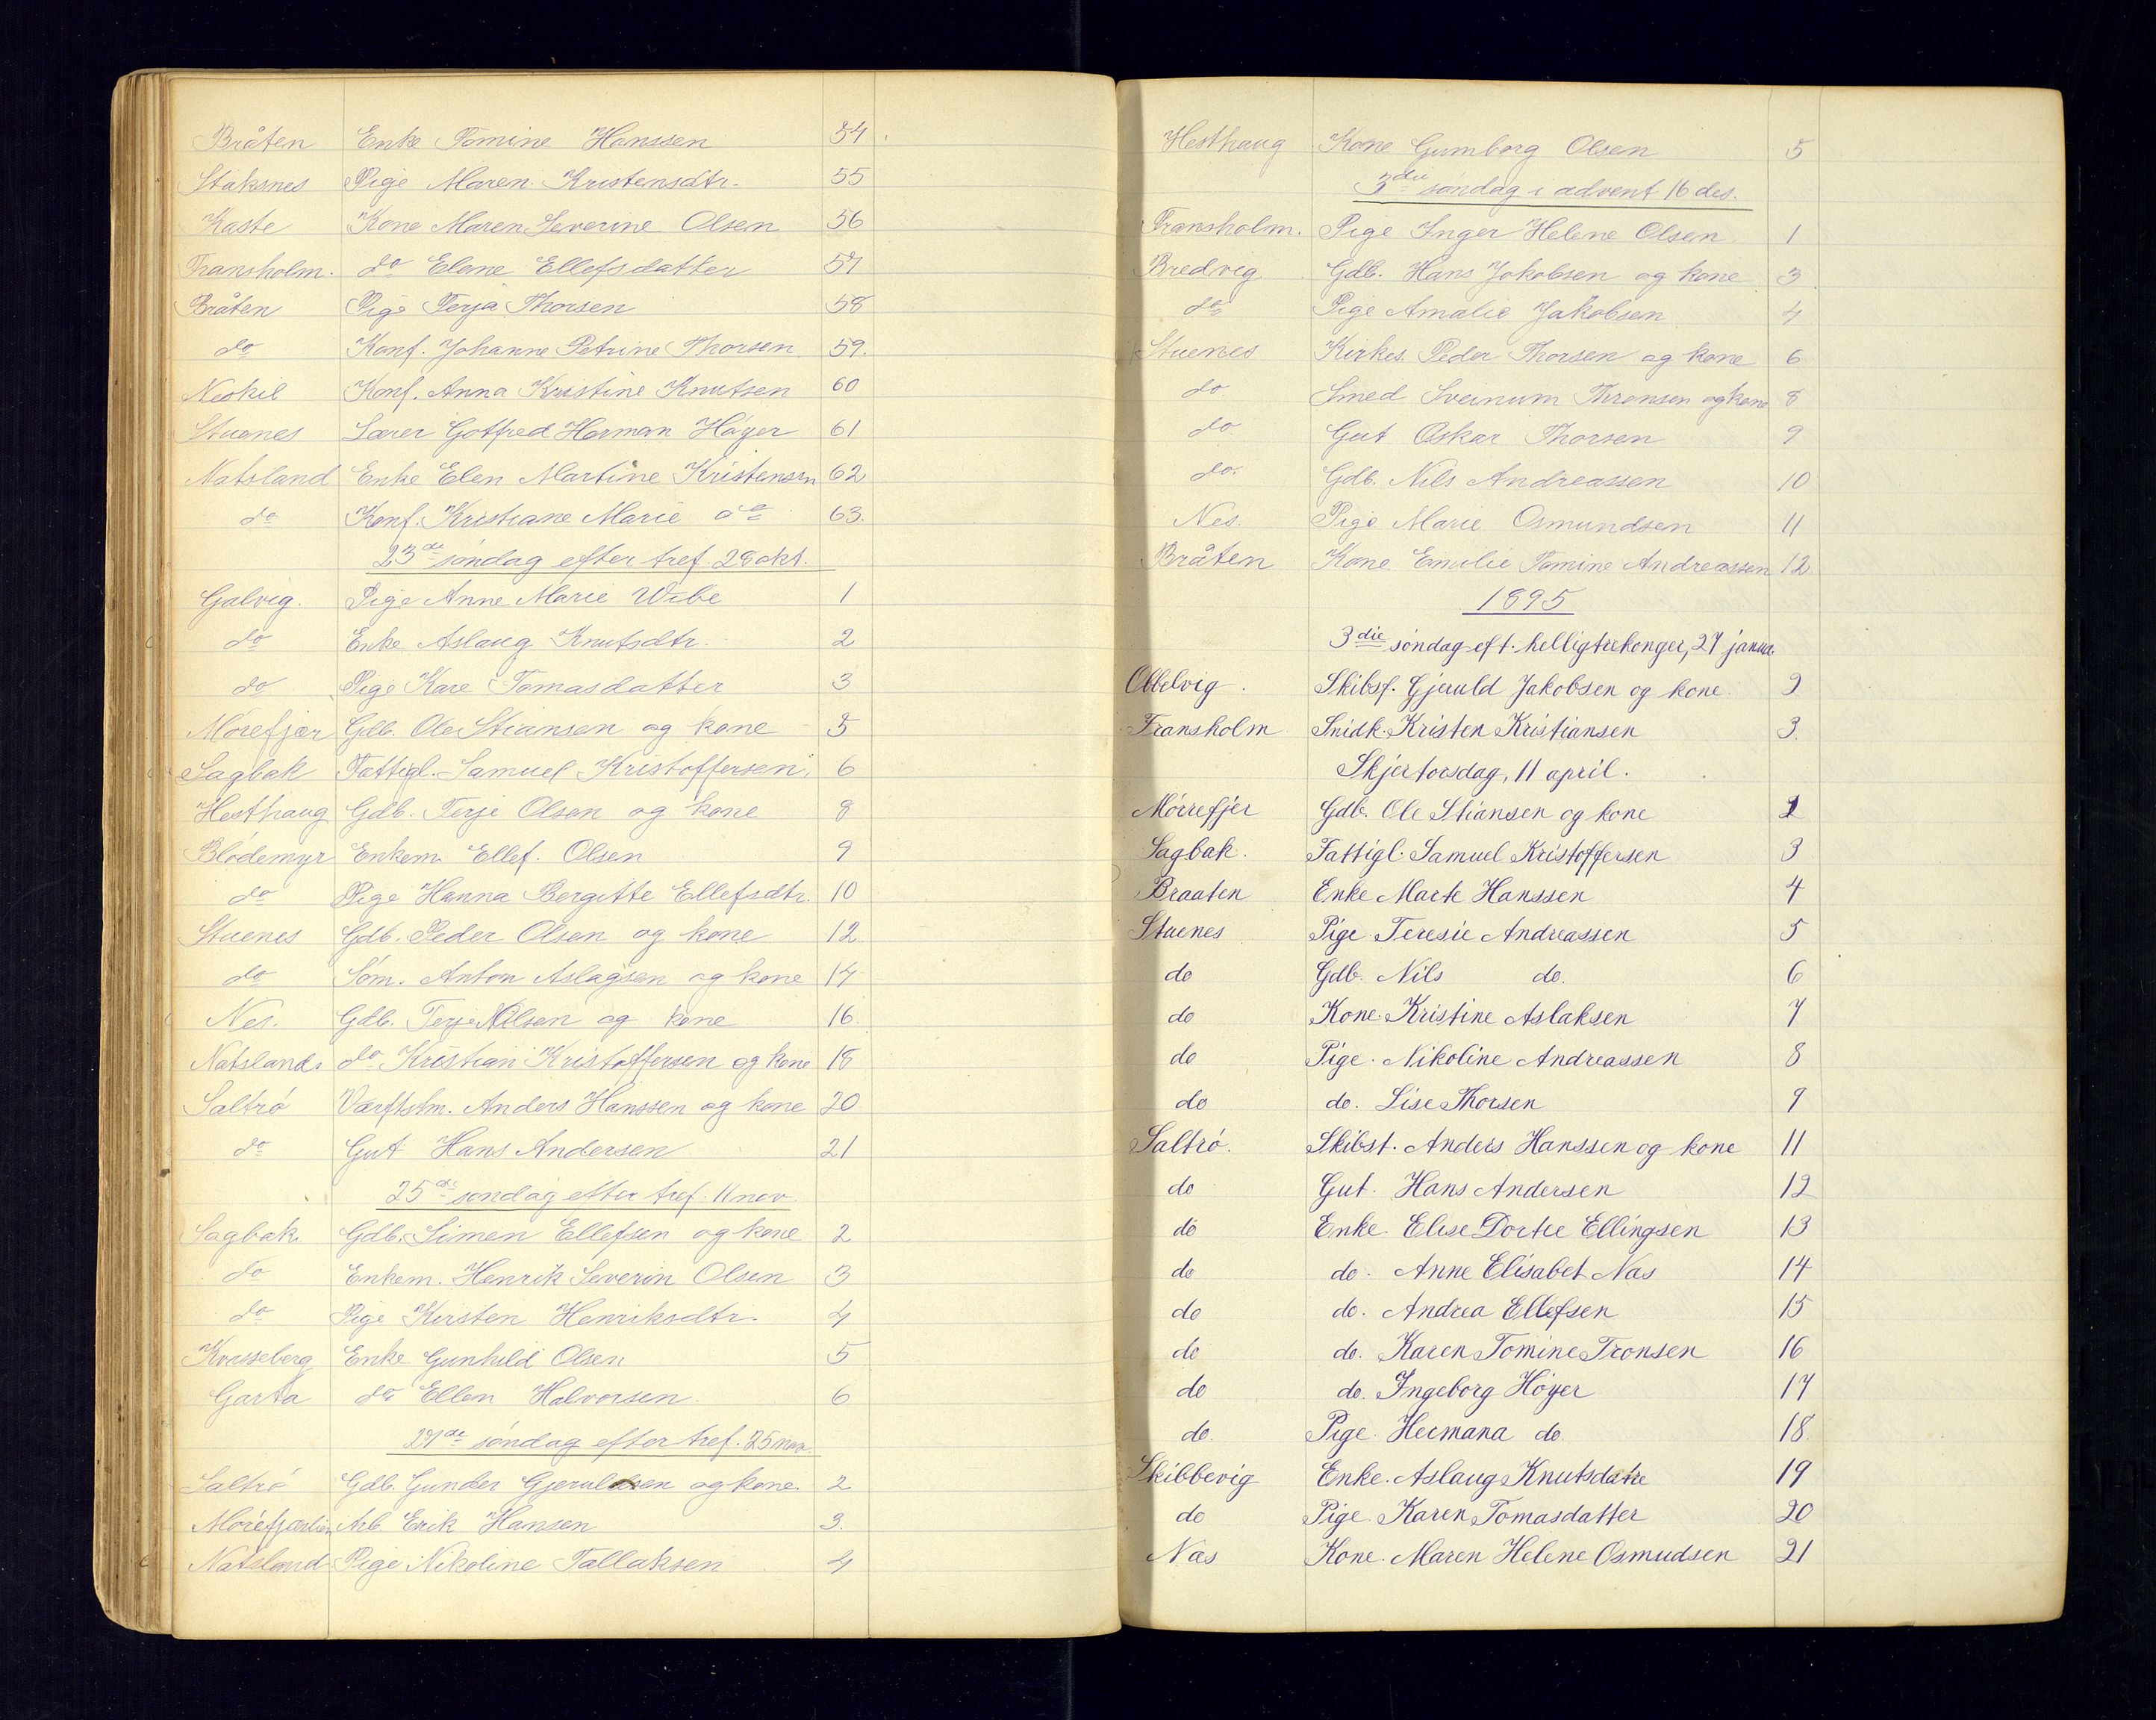 Bråten Enke Tomine Hanssen 54
Staksnes Pige Maren Kristensdtr. 55
Kaste Kone Maren Severine Olsen 56
Fransholm. do Elene Ellefsdatter 57
Bråten Pige Terja Thorsen 58
do Konf. Johanne Petrine Thorsen 59.
Neskil Konf. Anna Kristine Knutsen 60
Stuenes Lærer Gotfred Herman Høyer 61
Natsland Enke Elen Martine Kristensen 62
do Konf. Kristiane Marie do 63.
23de søndag efter tref. 28 okt.
Galvig. Pige Anne Marie Wibe 1
do Enke Aslaug Knutsdtr. 2
do Pige Kare Tomasdatter 3
Mørefjær Gdb. Ole Stiansen og kone 5
Sagbak Fattigl. Samuel Kristoffersen. 6
Hesthaug Gdb. Terje Olsen og kone 8
Blødemyr Enkem. Ellef. Olsen 9
do Pige Hanna Bergitte Ellefsdtr. 10
Stuenes Gdb. Peder Olsen og kone 12
do Søm. Anton Aslagsen og kone 14
Nes. Gdb. Terje Nilsen og kone 16
Natsland. do Kristian Kristoffersen og kone 18
Saltrø Værftstm. Anders Hanssen og kone 20
do Gut Hans Andersen 21
25de søndag efter tref. 11 nov.
Sagbak Gdb. Simen Ellefsen og kone 2
do Enkem. Henrik Severin Olsen 3
do Pige Kirsten Henriksdtr. 4
Kvasseberg Enke Gunhild Olsen 5
Garta do Ellen Halvorsen 6
27de søndag efter tref. 25 nov.
Saltrø Gdb. Gunder Gjeruldsen og kone. 2
Mørefjærlien Arb. Erik Hansen 3.
Natsland Pige Nikoline Tallaksen 4
Hesthaug Kone Gumborg Olsen 5
3die søndag i advent 16 des.
Fransholm. Pige Inger Helene Olsen 1
Bredvig Gdb. Hans Jakobsen og kone 3
do Pige Amalie Jakobsen 4
Stuenes Kirkes. Peder Thorsen og kone 6
do Smed Sveinum Thronsen og kone 8
do Gut Oskar Thorsen 9
do. Gdb. Nils Andreassen 10
Nes. Pige Marie Osmundsen 11
Bråten Kone Emilie Tomine Andreassen 12
1895
3die søndag eft. helligtrekonger, 27 januar.
Obbelvig. Skibsf. Gjeruld Jakobsen og kone 2
Fransholm Snidk. Kristen Kristiansen 3.
Skjertorsdag, 11 april.
Mørrefjer Gdb. Ole Stiansen og kone 2
Sagbak. Fattigl. Samuel Kristoffersen 3
Braaten Enke Marte Hanssen 4
Stuenes Pige Teresie Andreassen 5
do Gdb. Nils do. 6
do Kone Kristine Aslaksen 7
do Pige. Nikoline Andreassen 8
do do. Lise Thorsen 9
Saltrø. Skibst. Anders Hanssen og kone 11
do Gut. Hans Andersen 12
do Enke. Elise Dortee Ellingsen 13
do do. Anne Elisabet Nas 14
do do. Andrea Ellefsen 15
do do. Karen Tomine Tronsen 16
do do. Ingeborg Høyer 17
do. Pige. Hermana do. 18.
Skibbevig Enke. Aslaug Knutsdatre 19
do Pige Karen Tomasdatter 20
Nas Kone. Maren Helene Osmudsen 21